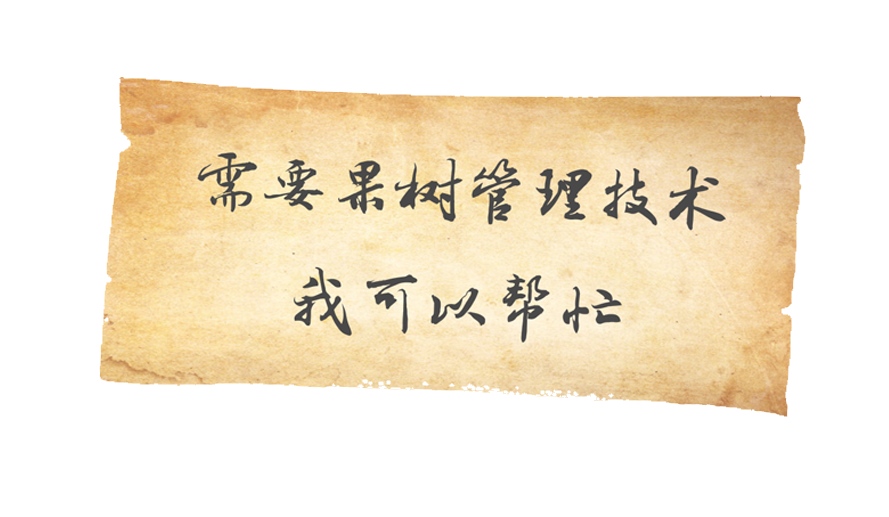 需要果树管理技术
我可以帮忙